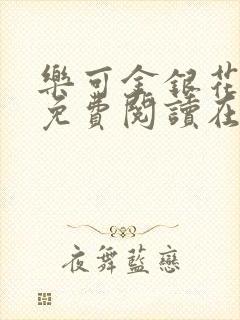 樂可金銀花
免費閱讀在
夜舞藍戀